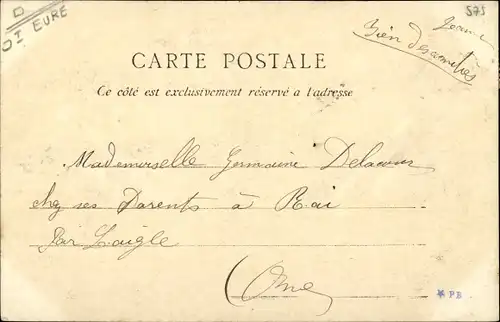 D
DT EURE
575
Jeanne
Bien des amitiés
CARTE POSTALE
Ce côté est exclusivement réservé a l'adresse
Mademoiselle Germaine Delacour
chez ses Parents à Rai
Par Laigle
Orne
* PB